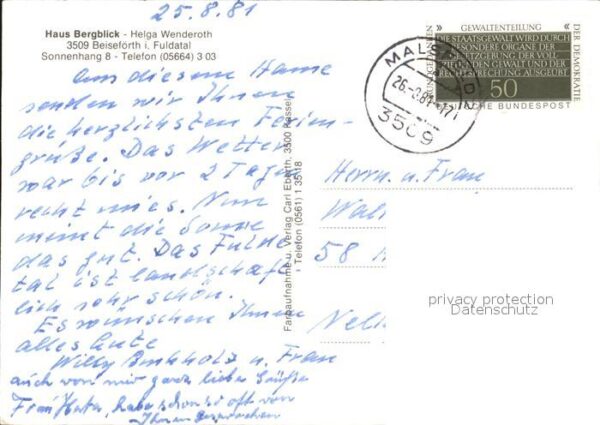 25.8.81
Haus Bergblick - Helga Wenderoth
3509 Beiseförth i. Fuldatal
Sonnenhang 8 - Telefon (05664) 3 03
Aus diesem Hause
senden wir Ihnen
die herzlichsten Ferien-
grüße. Das Wetter
war bis vor 2 Tagen
recht mies. Nun
meint die Sonne
das gut. Das Fulda-
tal ist landschaft-
lich sehr schön.
Es wünschen Ihnen
alles Gute
Willy u. Frau
auch von mir ganz liebe Grüße
Frau habe schon so oft von
Ihnen gesprochen
Farbaufnahme u. Verlag Carl Eberth, 3500 Kassel
Telefon (0561) 1 35 18
» GEWALTENTEILUNG «
DIE STAATSGEWALT WIRD DURCH
BESONDERE ORGANE DER
GESETZGEBUNG DER VOLL
ZIEHENDEN GEWALT UND DER
RECHTSPRECHUNG AUSGEÜBT
50
DEUTSCHE BUNDESPOST
GRUNDGEDANKEN
DER DEMOKRATIE
3509
Herrn u. Frau
58
privacy protection
Datenschutz